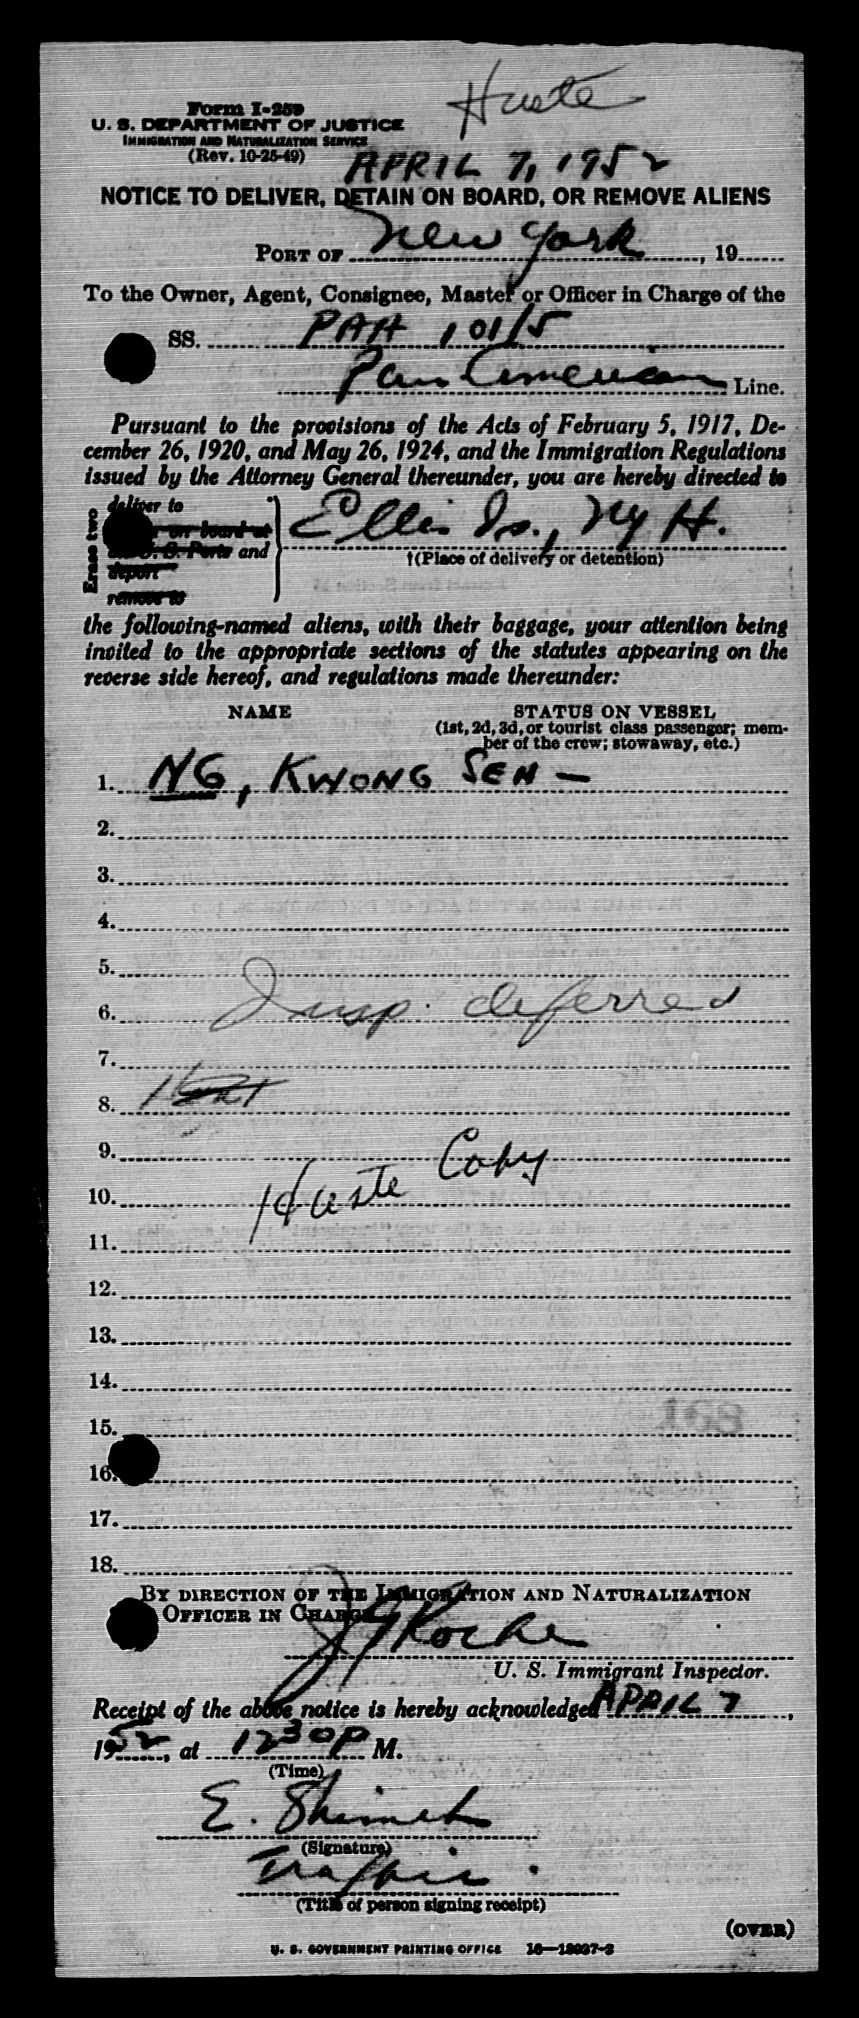 Form I-259
U. S. DEPARTMENT OF JUSTICE
IMMIGRATION AND NATURALIZATION SERVICE
(Rev. 10-25-49)
APRIL 7, 1952
NOTICE TO DELIVER, DETAIN ON BOARD, OR REMOVE ALIENS
PORT OF New York, 19
To the Owner, Agent, Consignee, Master or Officer in Charge of the
SS. PAA 101/5
Pan American Line.
Pursuant to the provisions of the Acts of February 5, 1917, De-
cember 26, 1920, and May 26, 1924, and the Immigration Regulations
issued by the Attorney General thereunder, you are hereby directed to
Erase two
deliver to
or on board at
U. S. Ports and
deport
remove to
Ellis Is., NY H.
†(Place of delivery or detention)
the following-named aliens, with their baggage, your attention being
invited to the appropriate sections of the statutes appearing on the
reverse side hereof, and regulations made thereunder:
NAME STATUS ON VESSEL
(1st, 2d, 3d, or tourist class passenger; mem-
ber of the crew; stowaway, etc.)
1. NG, KWONG SEH —
2.
3.
4.
5.
6. Insp. deferred
7.
8.
9.
10. Copy
11.
12.
13.
14.
15. 168
16.
17.
18.
BY DIRECTION OF THE IMMIGRATION AND NATURALIZATION
OFFICER IN CHARGE
Roche
U. S. Immigrant Inspector.
Receipt of the above notice is hereby acknowledged APRIL 7,
1952, at 1230P M.
(Time)
E. Shimek
(Signature)
Traffic.
(Title of person signing receipt)
(OVER)
U. S. GOVERNMENT PRINTING OFFICE 16—18037-2